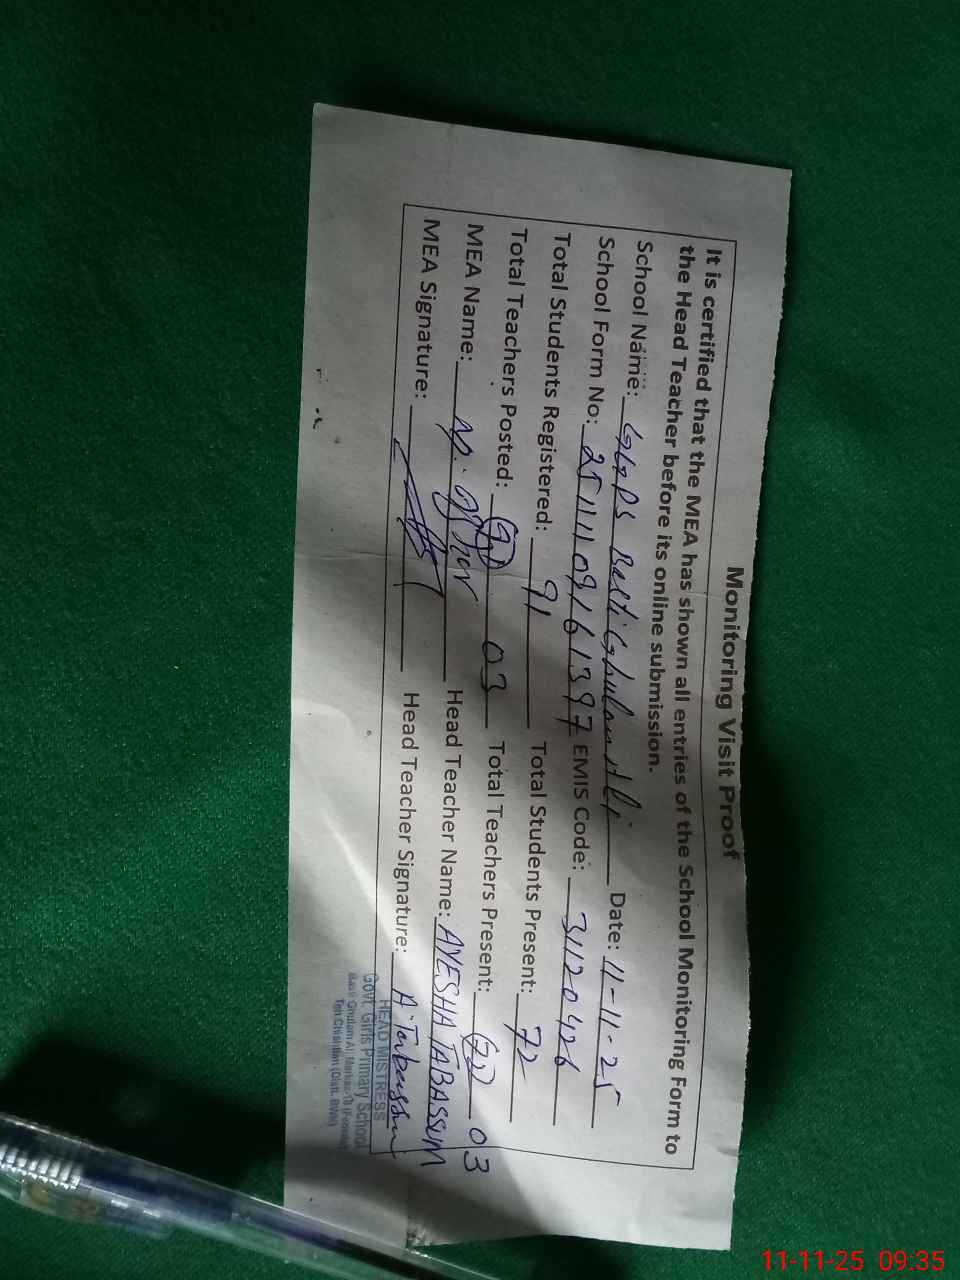 Monitoring Visit Proof
It is certified that the MEA has shown all entries of the School Monitoring Form to
the Head Teacher before its online submission.
School Name: GGPS Basti Ghulam Ali Date: 11-11-25
School Form No: 2511109161397 EMIS Code: 31120426
Total Students Registered: 91 Total Students Present: 72
Total Teachers Posted: 03 Total Teachers Present: 03
MEA Name: Head Teacher Name: AYESHA TABASSUM
MEA Signature: Head Teacher Signature: A. Tabassum
HEAD MISTRESS
Govt. Girls Primary School
Basti Ghulam Ali
11-11-25 09:35